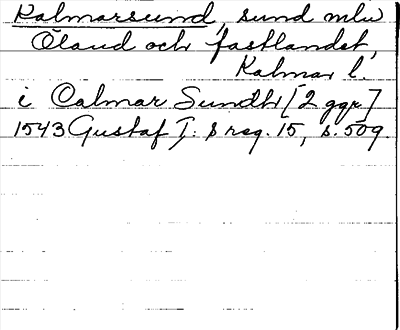 Kalmarsund, sund mlw
Öland och fastlandet,
Kalmar l.
i Calmar Sundh [2 ggr]
1543 Gustaf I:s reg. 15, s. 509.